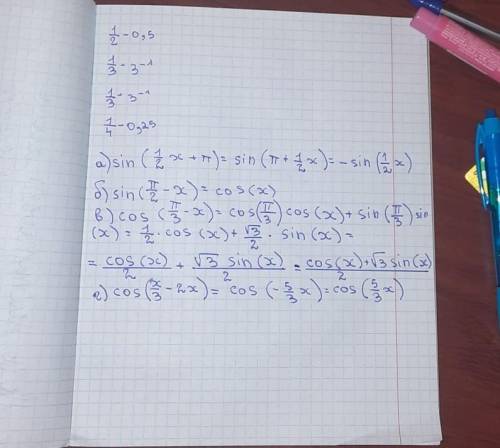 1/2 - 0,5
1/3 - 3⁻¹
1/3 - 3⁻¹
1/4 - 0,25
а) sin (1/2 x + π) = sin (π + 1/2 x) = - sin (1/2 x)
б) sin (π/2 - x) = cos (x)
в) cos (π/3 - x) = cos (π/3) cos (x) + sin (π/3) sin
(x) = 1/2 · cos (x) + √3/2 · sin (x) =
= cos (x)/2 + √3 sin (x)/2 = cos (x) + √3 sin (x)/2
г) cos (x/3 - 2x) = cos (- 5/3 x) = cos (5/3 x)